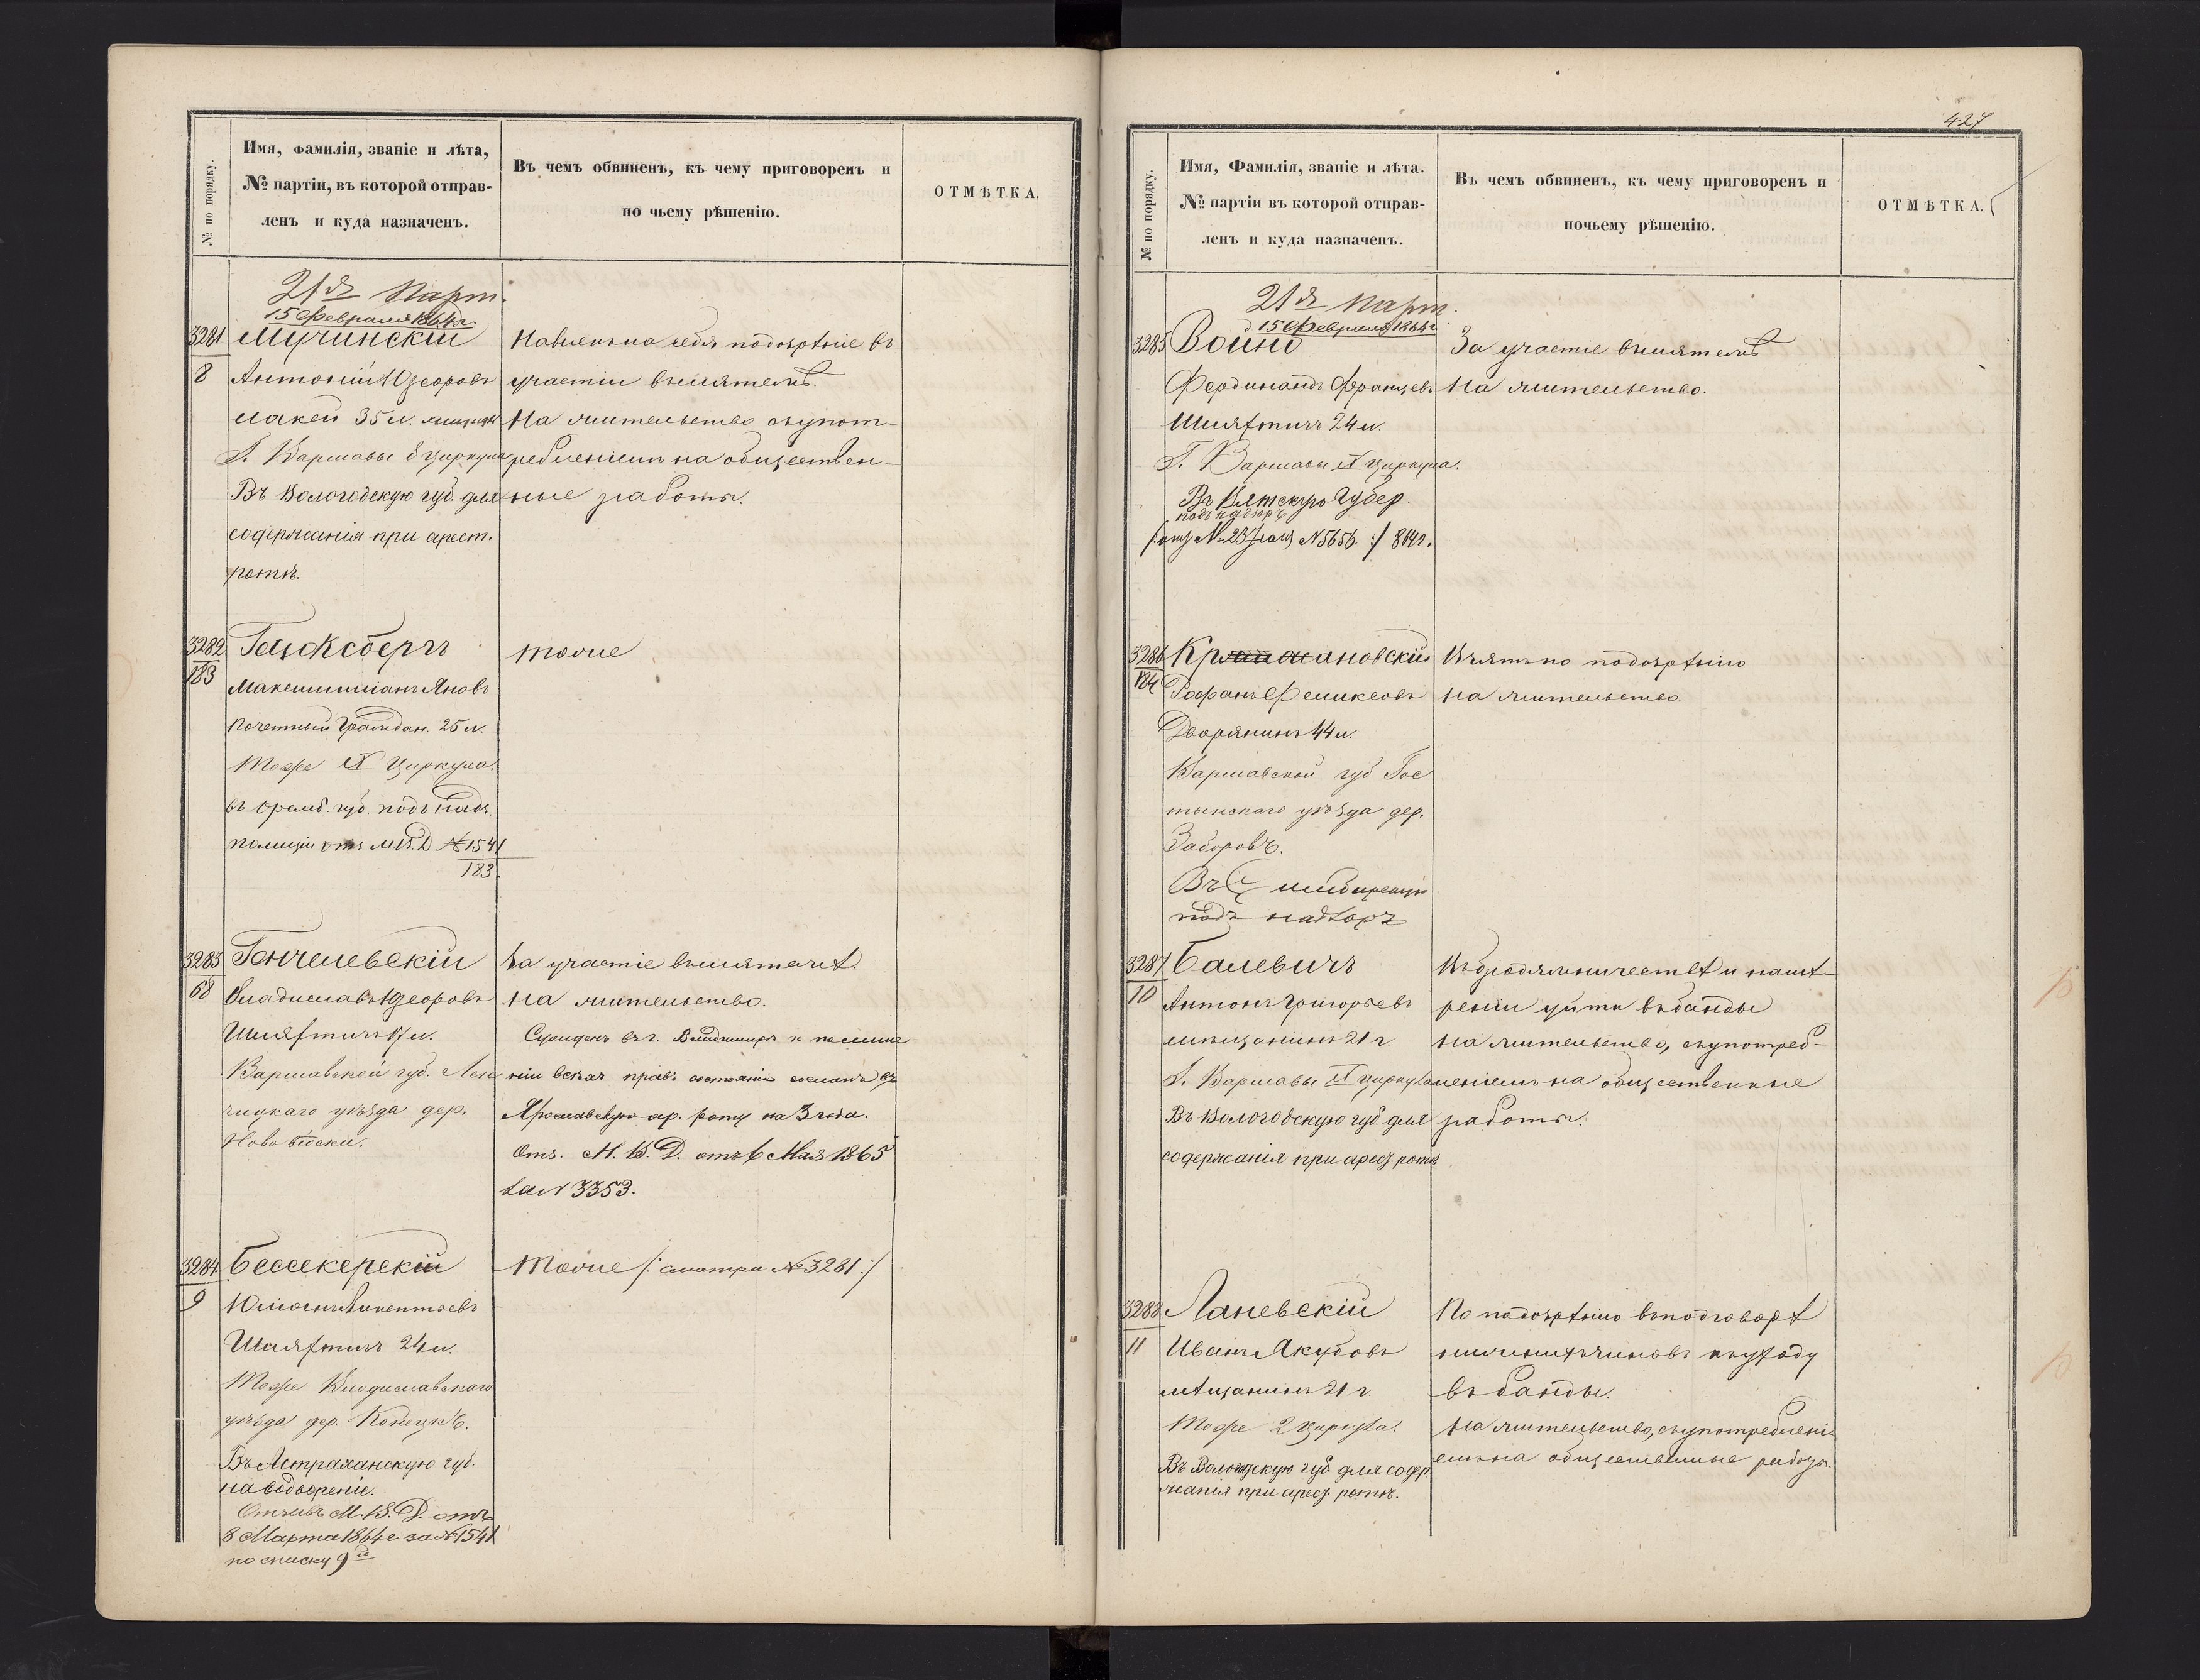 № по порядку.
Имя, фамилія, званіе и лѣта,
№ партіи, въ которой отправ-
ленъ и куда назначенъ.
Въ чемъ обвиненъ, къ чему приговоренъ и
по чьему рѣшенію.
ОТМѢТКА.
21я парт.
15 Февраля 1864 г.
3281
8
Мучинскій
Антоній
лакей 35 л.
Г. Варшавы 8 циркула
Въ Вологодскую губ. для
содержанія при арест.
ротѣ.
Навлекъ на себя подозрѣніе въ
участіи въ мятежѣ.
На жительство съ упот-
ребленіемъ на обществен-
ные работы.
3282
183
Максимиліанъ Яновъ
Почетный Граждан. 25 л.
Тоже IX Циркула.
въ Оренб. губ. подъ надз.
полиціи отз. М.В.Д. № 1541
183
тоже
3283
68
Гончелевскій
Владиславъ
Шляхтичъ 17 л.
Варшавской губ. Лен
чицкаго уѣзда дер.
Ново віоски.
За участіе въ мятежѣ.
На жительство.
Сужденъ въ г. Владиміръ и по лише
ніи всѣхъ правъ состоянія сосланъ въ
Ярославскую ар. роту на 3 года.
Отз. М. В. Д. отъ 6 Мая 1865
за № 3353.
3284
9
Бессекерскій
Юліанъ Викентьевъ
Шляхтичъ 24 л.
Тоже Влодиславскаго
уѣзда дер. Конецкъ.
Въ Астраханскую губ.
на водвореніе.
Отзывъ М. В. Д. отъ
8 Марта 1864 г. за № 1541
по списку 9й
тоже /: смотри № 3281 :/
427
№ по порядку.
Имя, Фамилія, званіе и лѣта.
№ партіи въ которой отправ-
ленъ и куда назначенъ.
Въ чемъ обвиненъ, къ чему приговоренъ и
почьему рѣшенію.
ОТМѢТКА.
21я парт.
15 Февраля 1864 г.
3285
Войно
Фердинандъ Францевъ
Шляхтичъ 24 л.
Г. Варшавы IX циркула.
Въ Вятскую Губер.
подъ надзоръ
№ 5656 :/ 864 г.
За участіе въ мятежѣ
На жительство.
3286
184
Феликсовъ
Дворянинъ 44 л.
Варшавской губ Гос
тынскаго уѣзда дер.
Заборовъ.
Въ Симбирскую
подъ надзоръ
Взятъ по подозрѣнію
На жительство.
3287
10
Балевичъ
Антонъ Григорьевъ
мѣщанинъ 21 г.
Г. Варшавы IX циркула
Въ Вологодскую губ. для
содержанія при арест. ротѣ
Въ бродяжничествѣ и намѣ-
реніи уйти въ банды
На жительство, съ употреб-
леніемъ на общественные
работы.
3288
11
Ланевскій
Иванъ Якубовъ
мѣщанинъ 21 г.
Тоже 2 циркула.
Въ Вологодскую губ. для содер
жанія при арест. ротѣ.
По подозрѣнію въ подговорѣ
нижнихъ чиновъ къ уходу
въ банды.
На жительство, съ употребленіе
емъ на общественные работы.